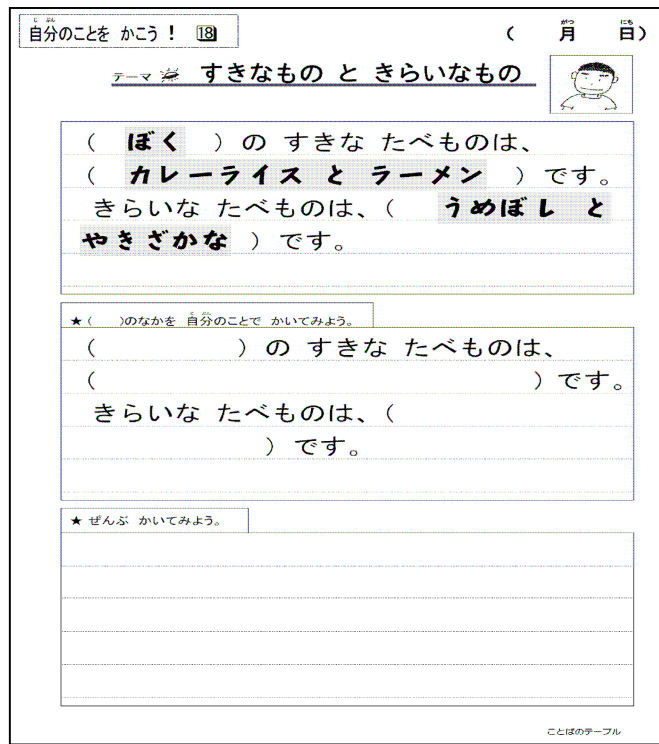 自分のことを かこう！ 18
じ ぶん
( 月 日)
がつ にち
テーマ すきなもの と きらいなもの
( ぼく )の すきな たべものは、
( カレーライス と ラーメン )です。
きらいな たべものは、( うめぼし と
やきざかな )です。
★( )のなかを 自分のことで かいてみよう。
じ ぶん
( )の すきな たべものは、
( )です。
きらいな たべものは、(
)です。
★ ぜんぶ かいてみよう。
ことばのテーブル